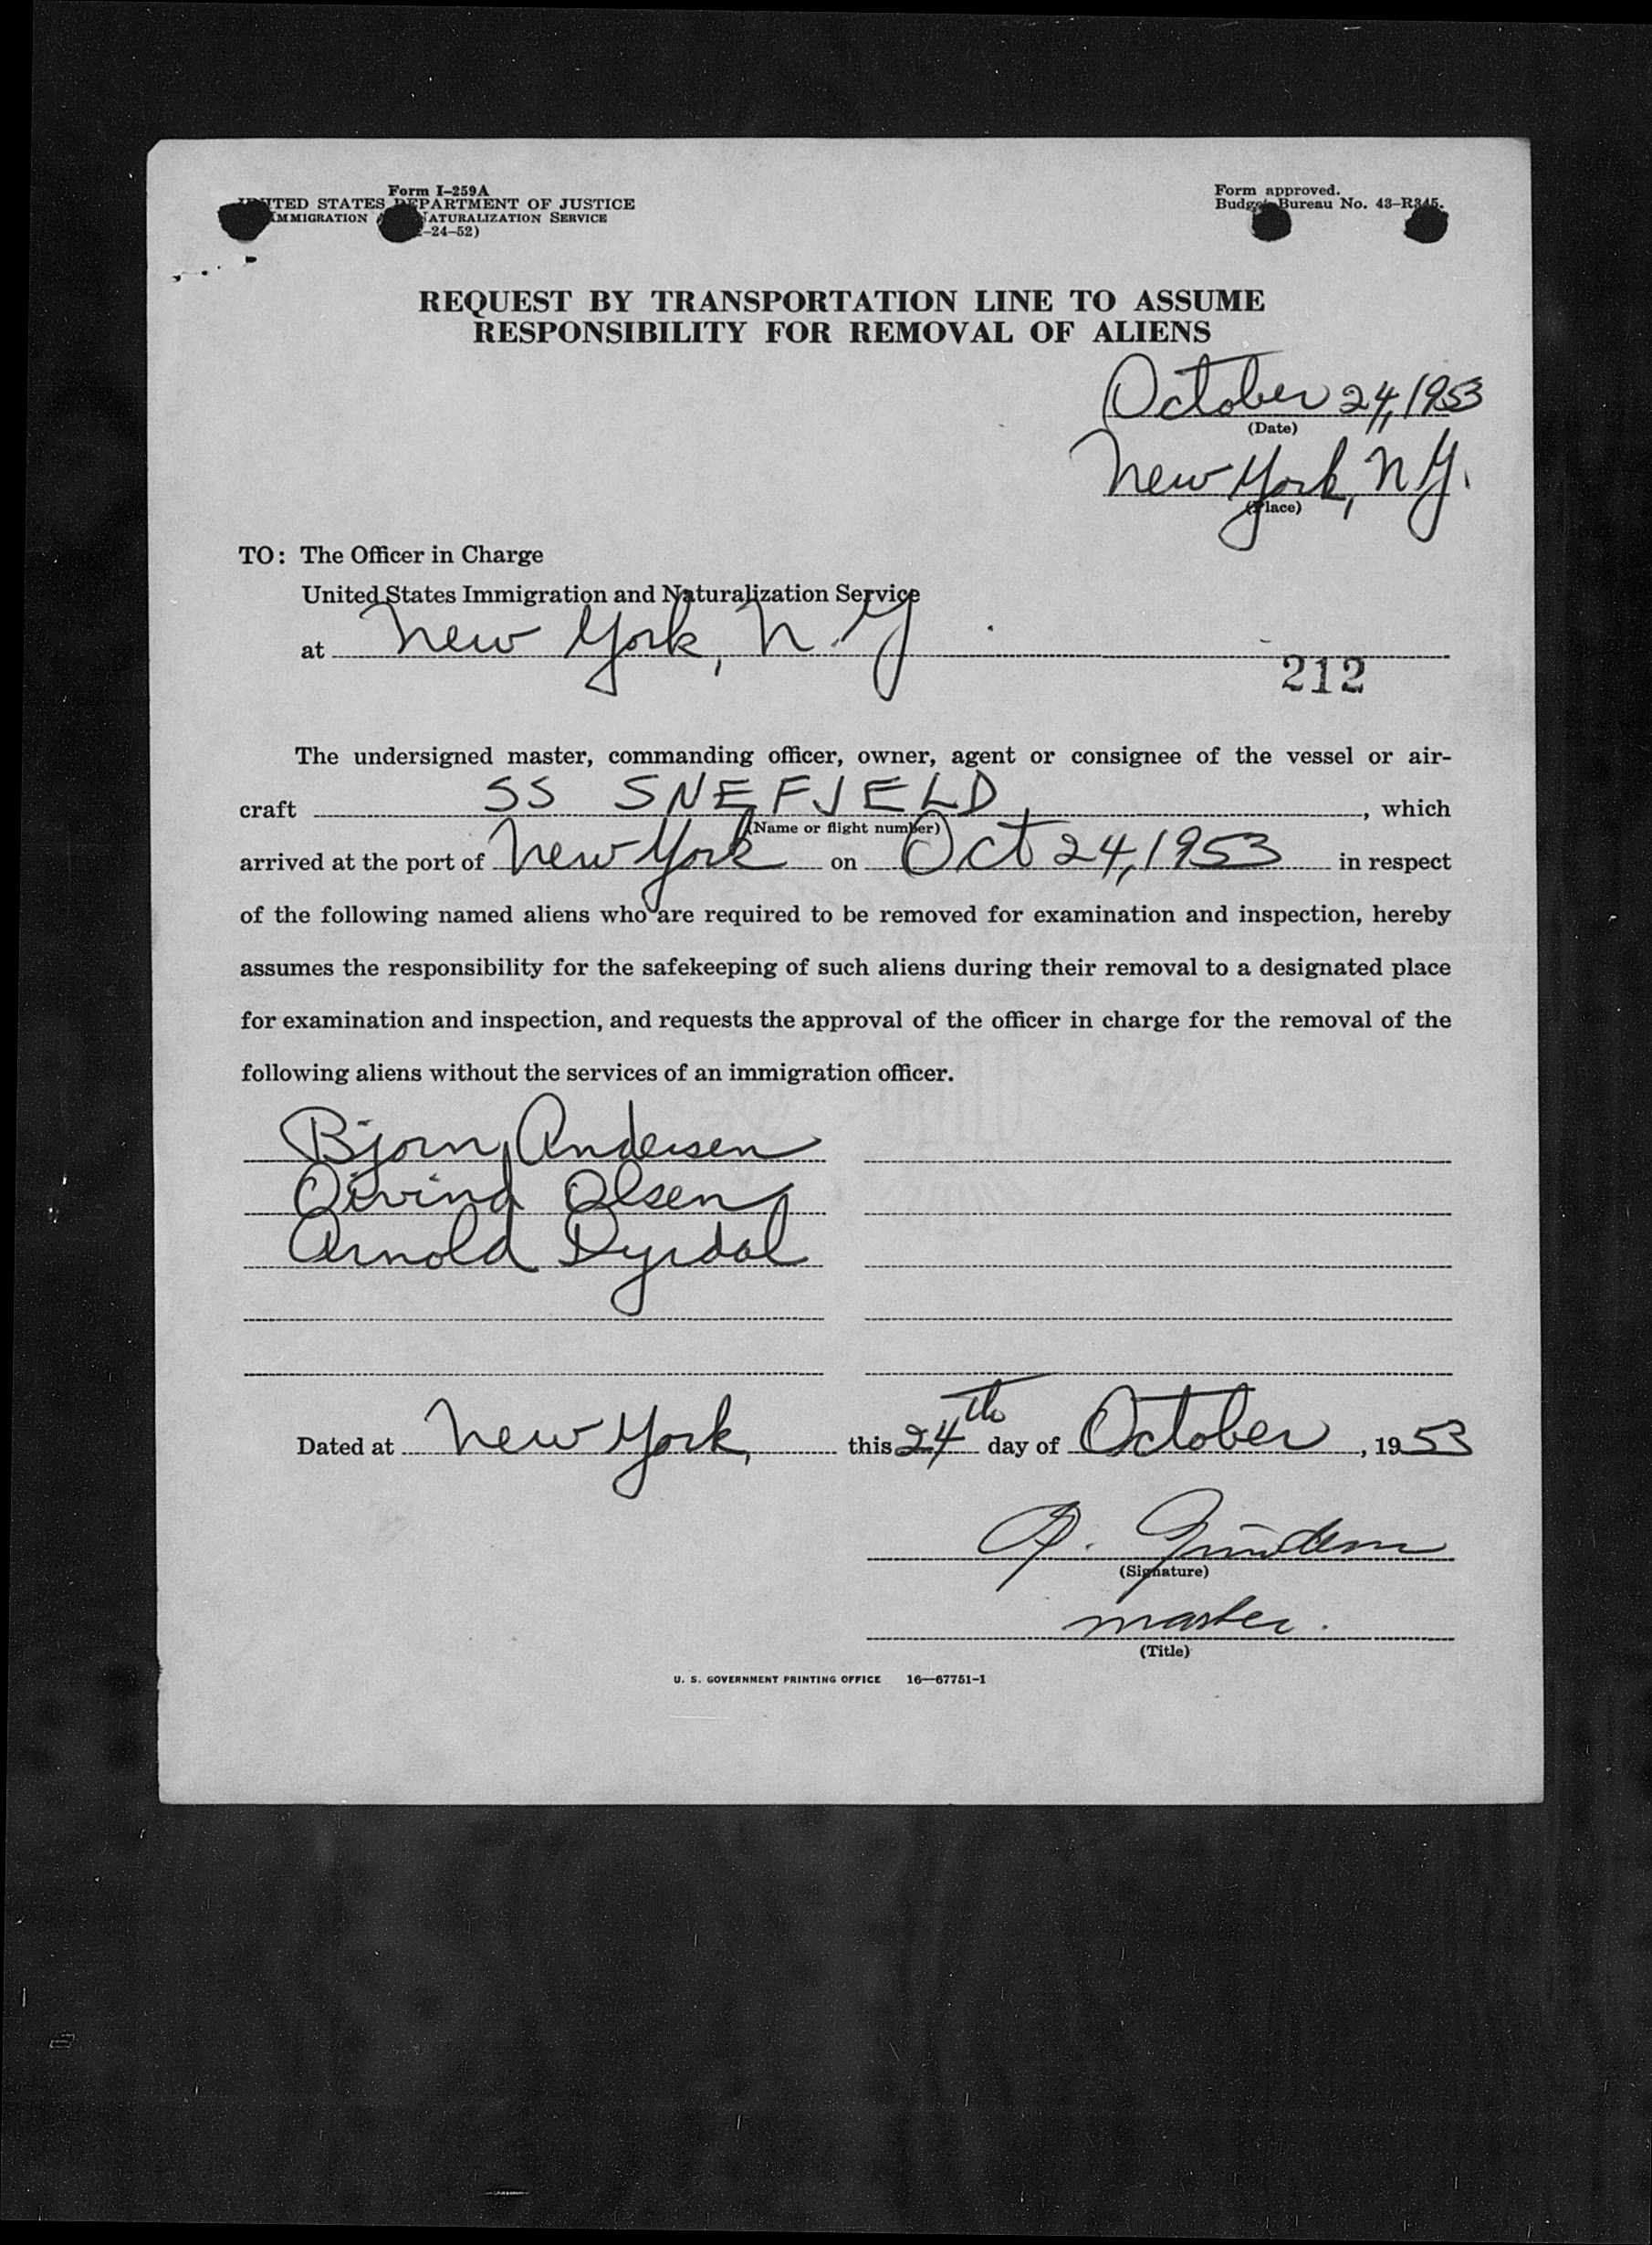 Form I-259A
UNITED STATES DEPARTMENT OF JUSTICE
IMMIGRATION NATURALIZATION SERVICE
-24-52)
Form approved.
Budget Bureau No. 43-R345.
REQUEST BY TRANSPORTATION LINE TO ASSUME
RESPONSIBILITY FOR REMOVAL OF ALIENS
October 24, 1953
(Date)
New York, N.Y.
(Place)
TO: The Officer in Charge
United States Immigration and Naturalization Service
at New York, N.Y
212
The undersigned master, commanding officer, owner, agent or consignee of the vessel or air-
craft SS SNEFJELD, which
(Name or flight number)
arrived at the port of New York on Oct 24, 1953 in respect
of the following named aliens who are required to be removed for examination and inspection, hereby
assumes the responsibility for the safekeeping of such aliens during their removal to a designated place
for examination and inspection, and requests the approval of the officer in charge for the removal of the
following aliens without the services of an immigration officer.
Bjorn Andersen
Oivind Olsen
Arnold Dyrdal
Dated at New York, this 24th day of October, 1953
(Signature)
master.
(Title)
U. S. GOVERNMENT PRINTING OFFICE 16—67751-1